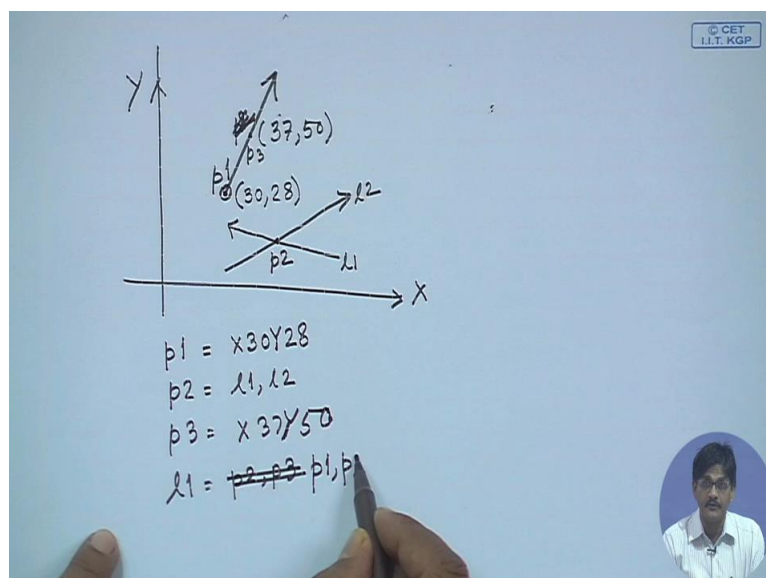 © CET
I.I.T. KGP
Y
(37,50)
p3
p1
(30,28)
l2
p2
l1
X
p1 = X30Y28
p2 = l1, l2
p3 = X37Y50
l1 = p2, p3 p1, p